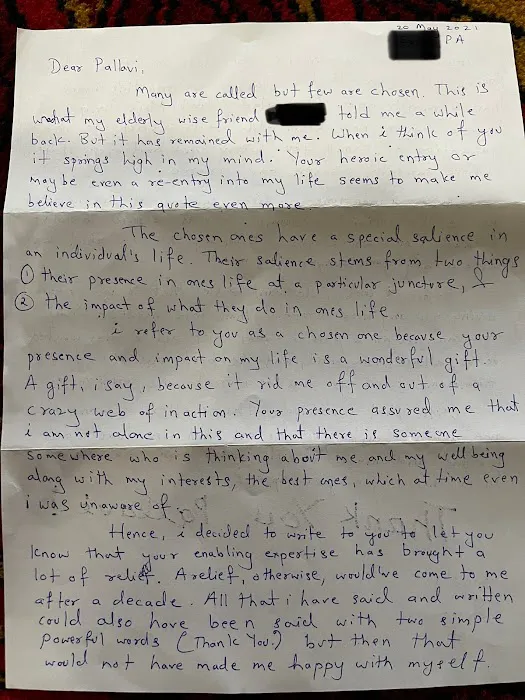 20 May 2021
PA
Dear Pallavi,
Many are called but few are chosen. This is
what my elderly wise friend told me a while
back. But it has remained with me. When i think of you
it springs high in my mind. Your heroic entry or
maybe even a re-entry into my life seems to make me
believe in this quote even more
The chosen ones have a special salience in
an individual's life. Their salience stems from two things
① their presence in ones life at a particular juncture, &
② the impact of what they do in ones life.
i refer to you as a chosen one because your
presence and impact on my life is a wonderful gift.
A gift, i say, because it rid me off and out of a
crazy web of inaction. Your presence assured me that
i am not alone in this and that there is someone
somewhere who is thinking about me and my well being
along with my interests, the best ones, which at time even
i was unaware of.
Hence, i decided to write to you to let you
know that your enabling expertise has brought a
lot of relief. A relief, otherwise, would've come to me
after a decade. All that i have said and written
could also have been said with two simple
powerful words (Thank You.) but then that
would not have made me happy with myself.